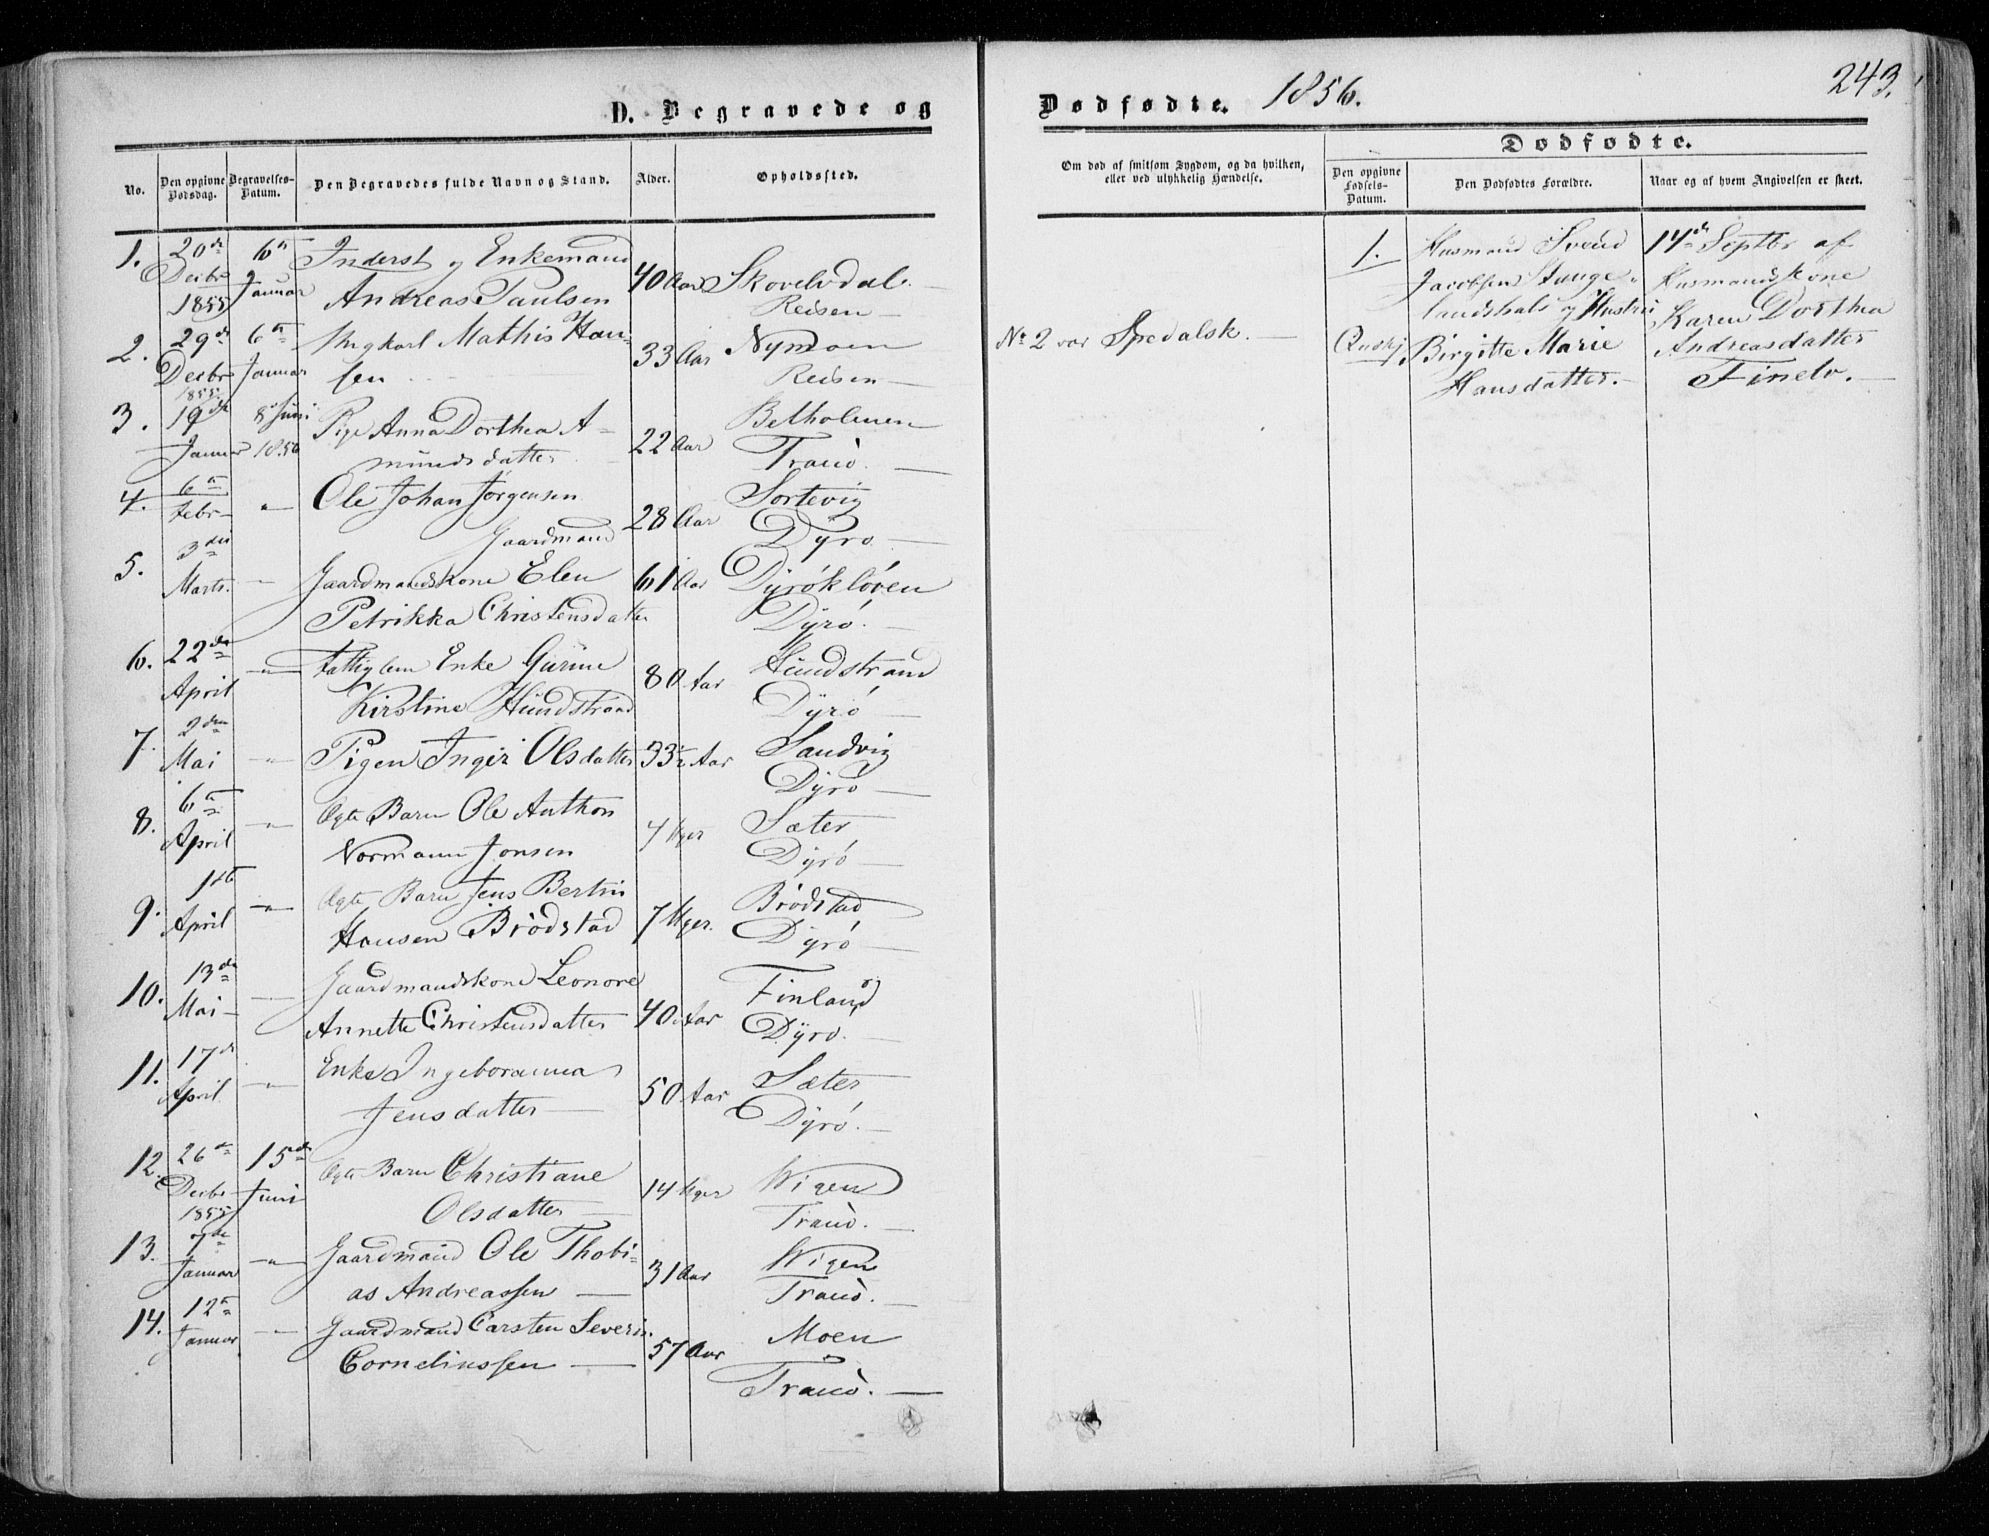 D. Begravede og
No.
Den opgivne Dødsdag.
Begravelses-Datum.
Den Begravedes fulde Navn og Stand.
Alder.
Opholdssted.
1. 20de 6te Inderst og Enkemand
Decbr Januar 40 Aar Skovelvdal
1855 Andreas Paulsen Reisen
2. 29de 6te Ungkarl Mathis Han-
Decbr Januar sen 33 Aar Nymoen
1855 Reisen
3. 19de 8de Juni Pige Anna Dorthea A-
Januar 1856 mundsdatter 22 Aar
Tranö.
4. 6te Febr " Ole Johan Jörgensen Sortevig
Gaardmand 28 Aar Dyrö
5. 3die
Marts " Gaardmandskone Elen 61 Aar Dyröklöven
Petrikka Christensdatter Dyrö.
6. 22de " Fattiglem Enke Gurine Hundstrand
April Kirstine Hundstrand 80 Aar Dyrö
7. 2den
Mai " Pigen Inger Olsdatter 33½ Aar Sandvig
Dyrö
8. 6te " Ægte Barn Ole Anthon Sæter
April Normann Jonsen Uger Dyrö
9. 1ste " Ægte Barn Jens Bertin Brödstad
April Hansen Brödstad 7 Uger. Dyrö
10. 13de Gaardmandskone Leonore Finland
Mai " Annette Christensdatter 40 Aar Dyrö.
11. 17de Enke Ingeboranna Sæter
April " Jensdatter 50 Aar Dyrö.
12. 26de 15de Ægte Barn Christiane
Decbr Juni 14 Uger Wigen
1855 Olsdatter Tranö.
13. 7de Gaardmand Ole Thobi- Wigen
Januar " as Andreassen 31 Aar Tranö.
14. 12te Gaardmand Carsten Severin Moen
Januar " Corneliussen 57 Aar Tranö.
Dødfødte. 1856. 243.
Om død af smitsom Sygdom, og da hvilken,
eller ved ulykkelig Hændelse.
Dødfødte.
Den opgivne Fødsels-Datum.
Den Dødfødtes Forældre.
Naar og af hvem Angivelsen er skeet.
1. Husmand Svend 14de Septbr af
Jacobsen Husmandskone
og Hustru Karen Dorthea
No 2 var Spedalsk. Birgitte Marie Andreasdatter
Hansdatter. Finelv.